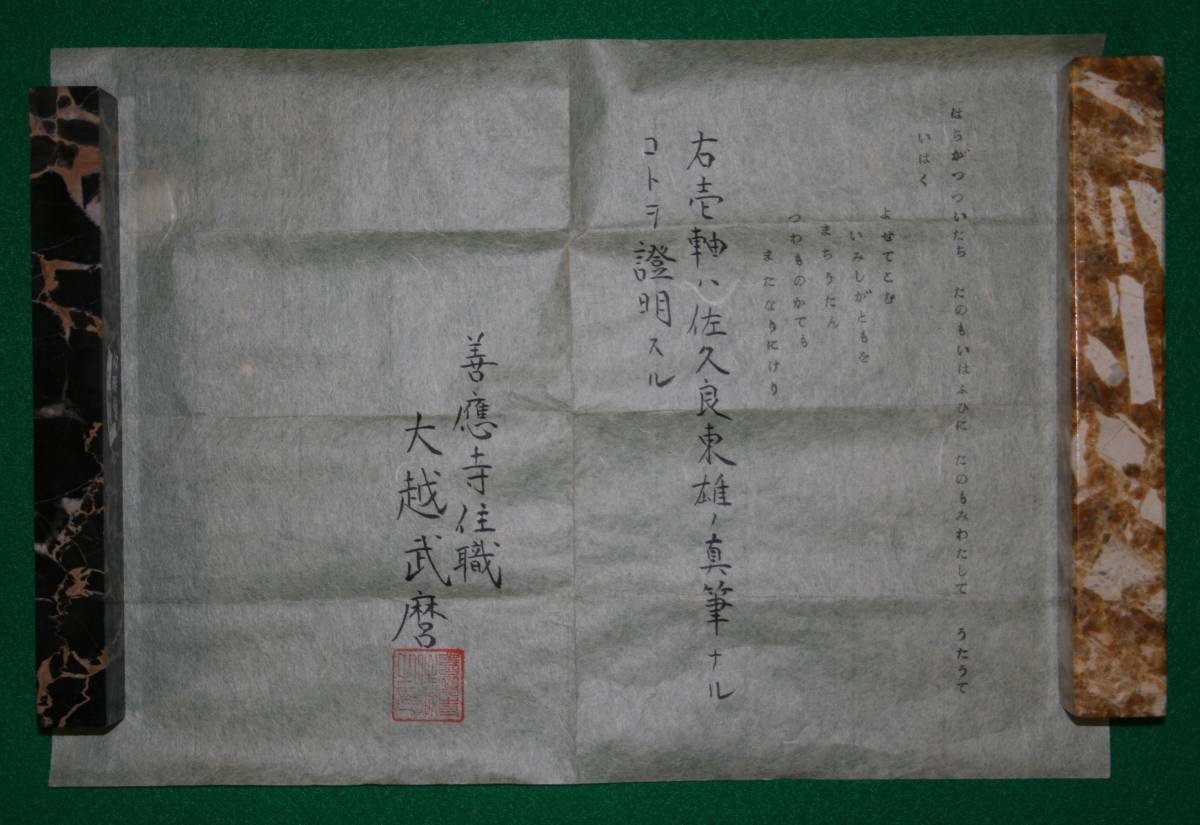 はちがつついたち たのもいはふひに たのもみわたして うたうて
いはく
よせてとむ
いみしがともを
まちうたん
つわものかても
またなりにけり
右壱軸ハ佐久良東雄ノ真筆ナル
コトヲ證明スル
善應寺住職
大越武麿